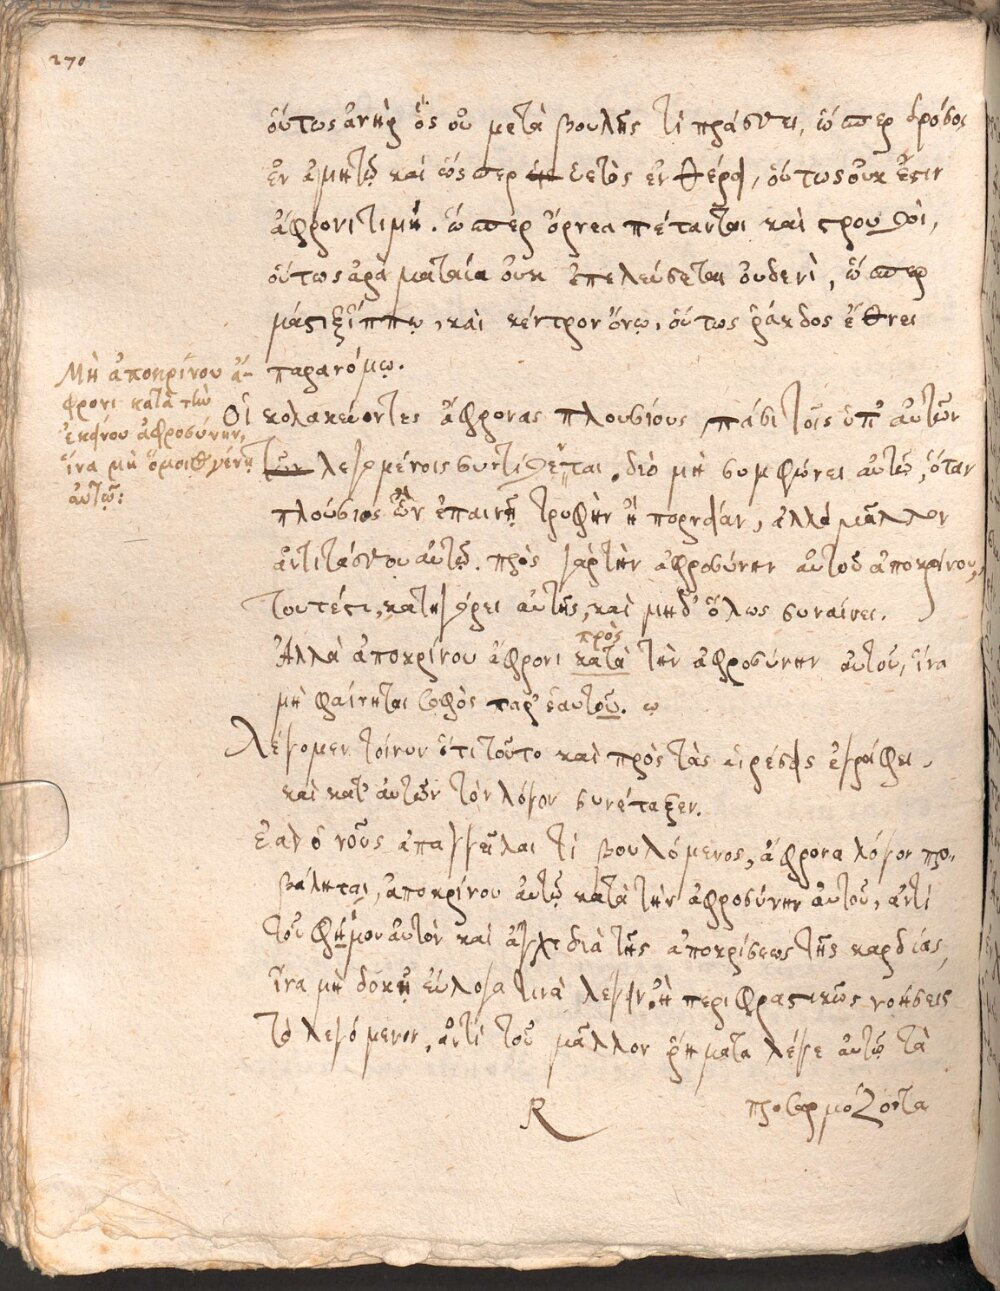 270
οὕτως ἀνὴρ ὃς οὐ μετὰ βουλῆς τὶ πράσσει, ὥσπερ δρόσος
ἐν ἀμητῷ καὶ ὥσπερ ὑετὸς ἐν θέρει, οὕτως οὐκ ἔστιν
ἄφρονι τιμή. ὥσπερ ὄρνεα πέτανται καὶ στρουθοὶ,
οὕτως ἀρὰ ματαία οὐκ ἐπελεύσεται οὐδενὶ, ὥσπερ
μάστιξ ἵππῳ, καὶ κέντρον ὄνῳ, οὕτως ῥάβδος ἔθνει
παρανόμῳ.
Μὴ ἀποκρίνου ἄ-
φρονι κατὰ τὴν
ἐκείνου ἀφροσύνην,
ἵνα μὴ ὅμοιος γένῃ
αὐτῷ:
Οἱ κολακεύοντες ἄφρονας πλουσίους, πᾶσι τοῖς ὑπ' αὐτῶν
τῶν λεγομένοις συντίθενται. διὸ μὴ συμφώνει αὐτῷ, ὅταν
πλούσιος ὢν ἐπαινῇ τρυφὴν ἢ πορνείαν, ἀλλὰ μᾶλλον
ἀντιτάσσου αὐτῷ. πρὸς γὰρ τὴν ἀφροσύνην αὐτοῦ ἀποκρίνου,
τουτέστι, κατηγόρει αὐτῆς, καὶ μηδ' ὅλως συναίνει.
πρὸς
Ἀλλὰ ἀποκρίνου ἄφρονι κατὰ τὴν ἀφροσύνην αὐτοῦ, ἵνα
μὴ φαίνηται σοφὸς παρ' ἑαυτοῦ. ῳ
Λέγομεν τοίνυν ὅτι τοῦτο καὶ πρὸς τὰς αἱρέσεις ἐγράφει,
καὶ κατ' αὐτῶν τὸν λόγον συνέταξεν.
Ἐὰν ὁ νοῦς ἀπαγγεῖλαι τὶ βουλόμενος, ἄφρονα λόγον προ-
βάληται, ἀποκρίνου αὐτῷ κατὰ τὴν ἀφροσύνην αὐτοῦ, ἀντὶ
τοῦ φήμου αὐτὸν καὶ ἄγχε διὰ τῆς ἀποκρίσεως τῆς καρδίας,
ἵνα μὴ δόκῃ εὔλογα τινὰ λέγειν, ἢ περιφραστικῶς νοήσεις
τὸ λεγόμενον, ἀντὶ τοῦ μᾶλλον ῥήματα λέγε αὐτῷ τὰ
R προσαρμόζοντα